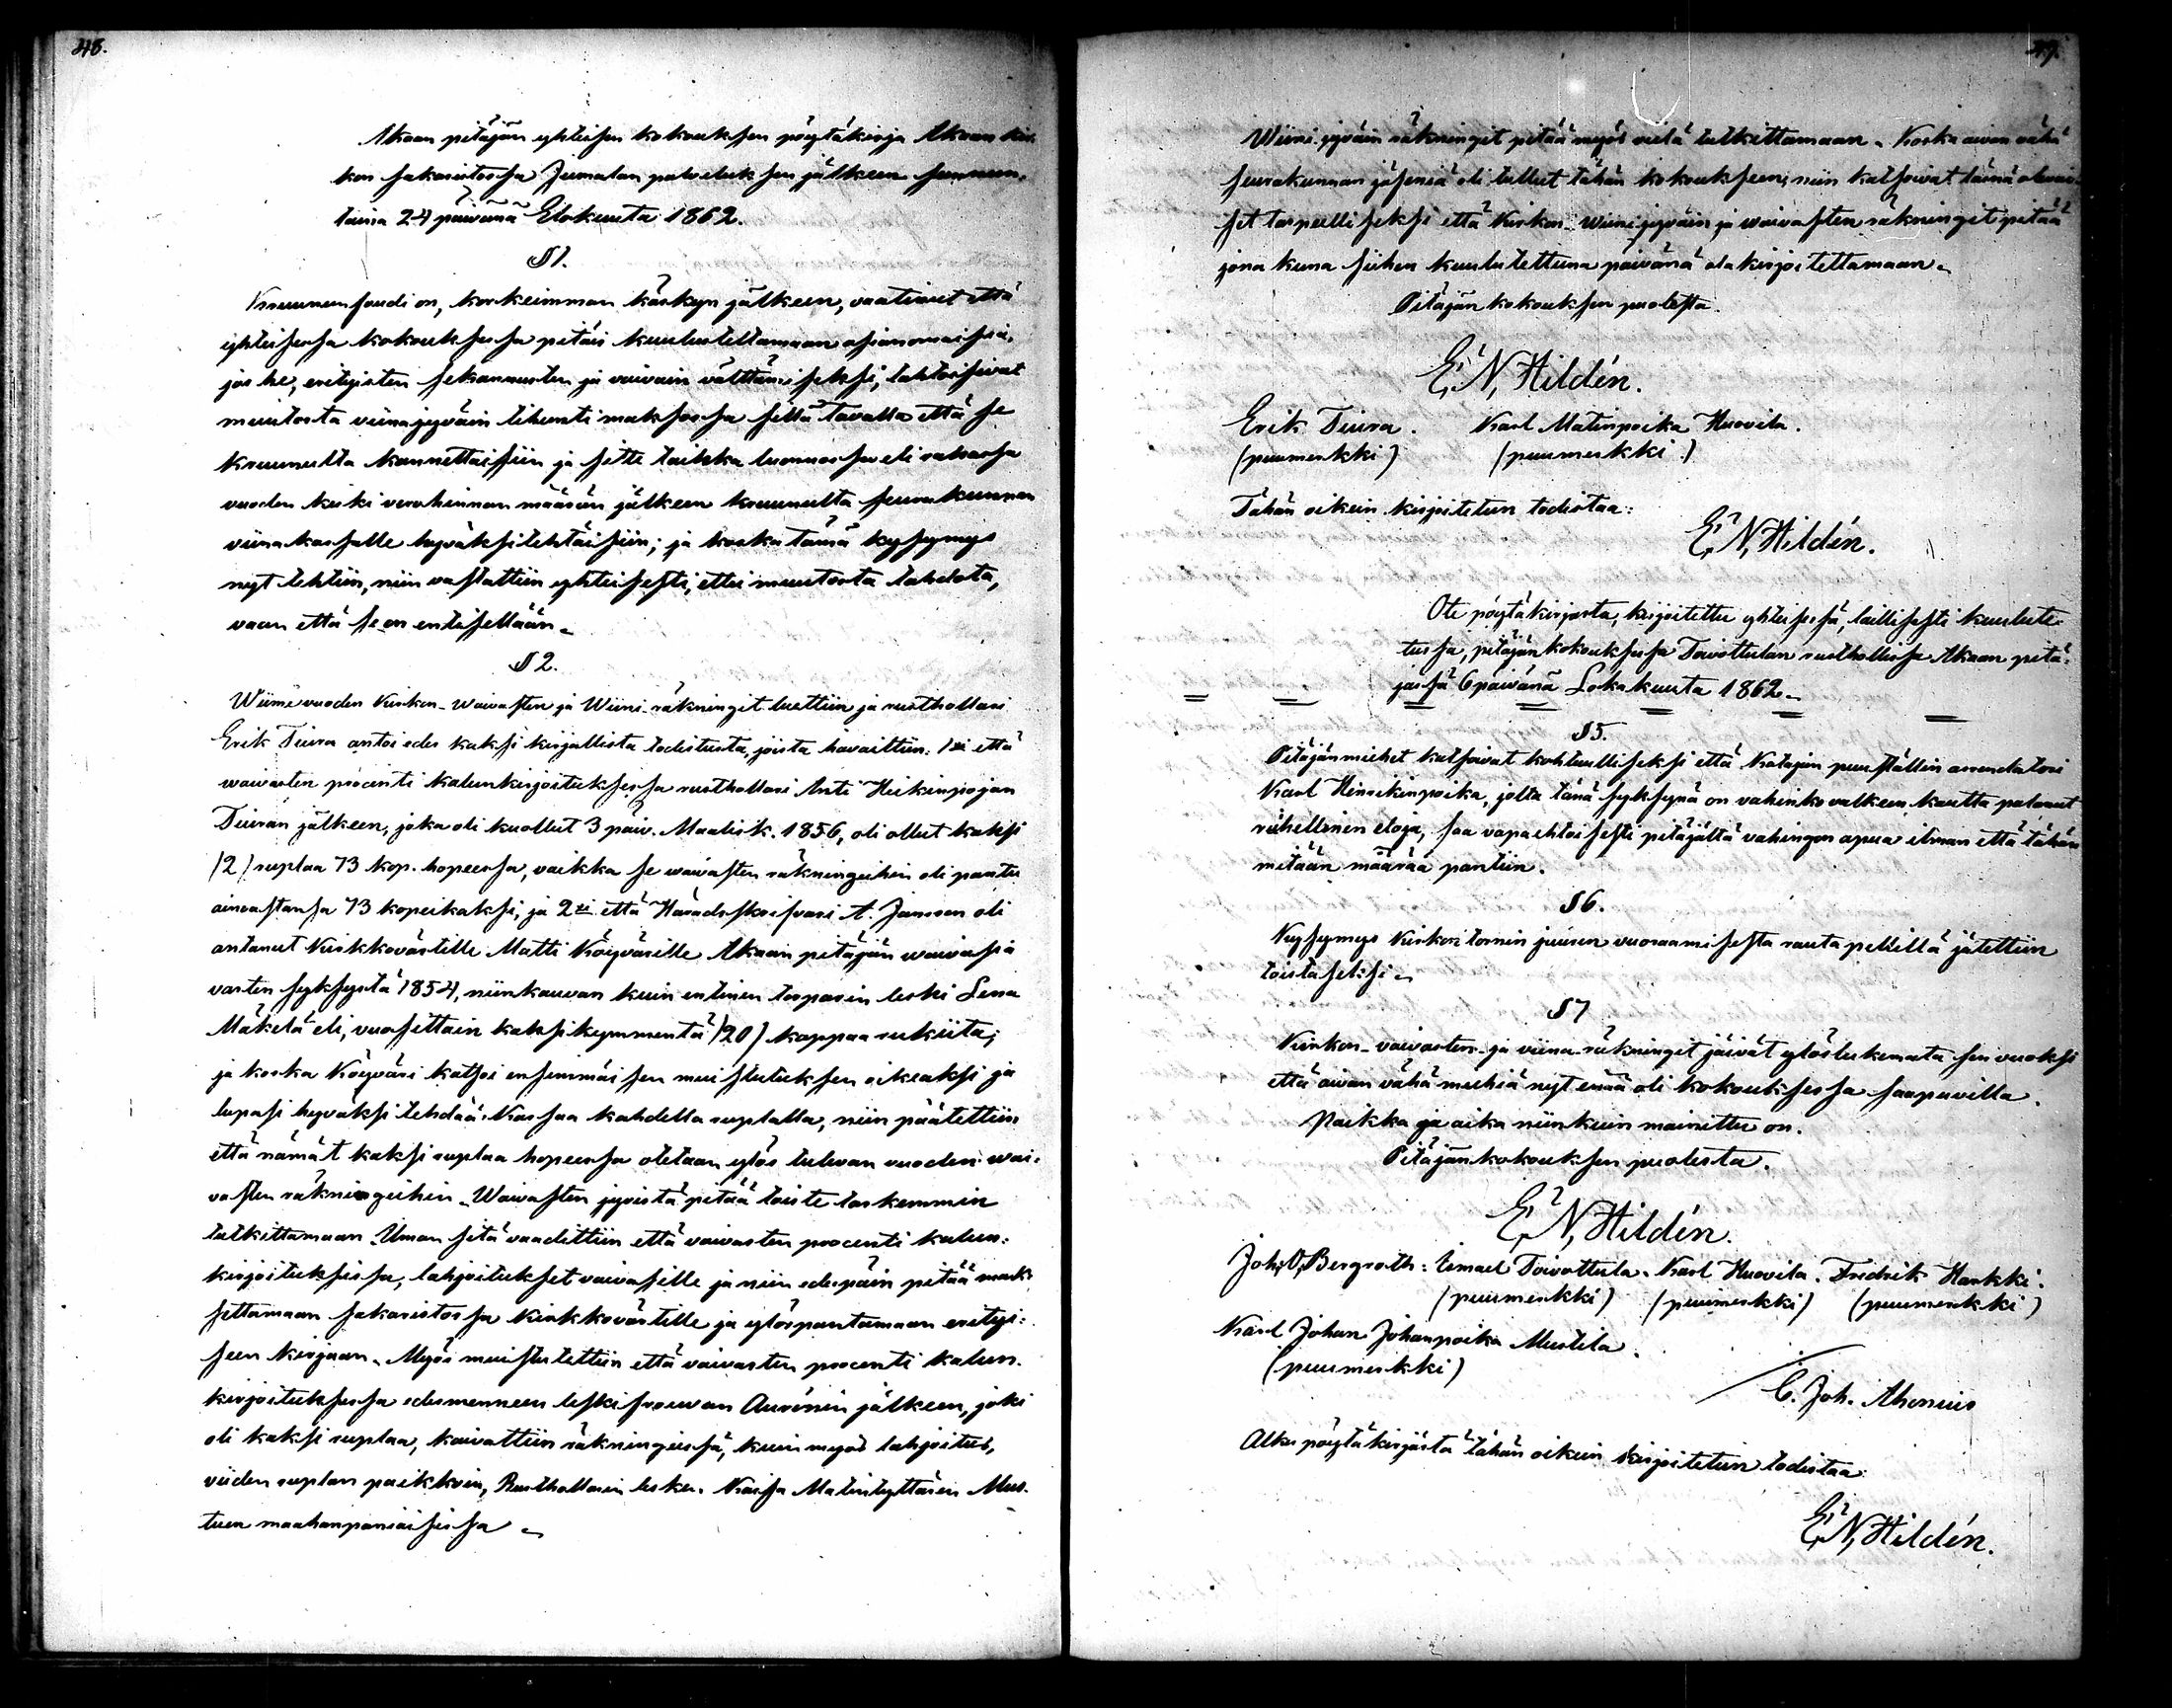 48.
Akaan pitäjän yhteisen kokouksen pöytäkirja Akaan kir-
kon sakaristossa Jumalan palveluksen jälkeen sunnun-
taina 24 päivänä Elokuuta 1862.
§ 1.
Kruununfoudi on, korkeimman käskyn jälkeen, vaatinut että
yhteisessa kokouksessa pitäis kuulusteltamaan asianomaisia,
jos he, erityisten sekannusten ja vaivain välttämiseksi, tahtoisivat
muutosta viinajyväin tihunti maksossa sillä tavalla että se
kruunulta kannettaisiin ja sitte taikka luonnossa eli rahassa
vuoden keski verohinnan määrän jälkeen kruunulta seurakunnan
viinakassalle hyväksitehtäisiin; ja koska tämä kysymys
nyt tehtiin, niin vastattiin yhteisesti, ettei muutosta tahdota,
vaan että se on entisellään.
§ 2.
Wiime vuoden Kirkon- waivasten ja Wiini- räkningit luettiin ja rusthollari
Erik Tiura antoi edes kaksi kirjallista todistusta, joista havaittiin: 1xi että
waivasten procenti kalunkirjoituksessa rusthollari Anti Heikinpojan
Tiuran jälkeen, joka oli kuollut 3 päiv. Maalisk. 1856, oli ollut kaksi
(2) ruplaa 73 kop. hopeessa, vaikka se waivasten räkningeihin oli pantu
ainoastansa 73 kopeikaksi, ja 2xi että Häradsskrifvari A. Jansson oli
antanut Kirkkovärtille Matti Köyvärille Akaan pitäjän waivasia
varten syksystä 1854, niinkauvan kuin entinen torparin leski Lena
Mäkelä eli, vuosittain kaksikymmentä (20) kappaa rukiita;
ja koska Köyväri katsoi ensimmäisen muistutuksen oikiaksi ja
lupasi hyväksi tehdää Kassaa kahdella ruplalla, niin päätettiin
että nämät kaksi ruplaa hopeessa otetaan ylös tulevan vuoden wai-
vasten räkningeihin. Waivasten jyvistä pitää toiste tarkemmin
tutkittamaan. Ilman sitä vaadittiin että vaivasten procenti kalun-
kirjoituksissa, lahjoitukset vaivasille ja niin edespäin pitää mak-
settamaan sakaristossa Kirkkovärtille ja ylöspantamaan erityi-
seen kirjaan. Myös muistutettiin että vaivasten procenti kalun-
kirjoituksessa edesmenneen leskifrouvan Aurénin jälkeen, joka
oli kaksi ruplaa, kaivattiin räkningissä, kuin myös lahjoitus,
viiden ruplan paikkoin, Rusthollarin lesken Kaisa Matintyttären Mus-
tuen maahanpaniaisissa.
Wiini jyväin räkningit pitää myös vielä tutkittamaan. Koska aivan vähä
seurakunnan jäseniä oli tullut tähän kokoukseen, niin katsoivat läsnä olevai-
set tarpeelliseksi että Kirkon- Wiini jyväin ja waivasten räkningit pitää
jona kuna siihen kuulutettuna päivänä alakirjoitettamaan.
Pitäjän kokouksen puolesta.
E. N. Hildén.
Erik Tiura. Karl Matinpoika Huovila.
(puumerkki) (puumerkki)
Tähän oikein kirjoitetun todistaa:
E. N. Hildén.
Ote pöytäkirjasta, kirjoitettu yhteisessä, laillisesti kuulute-
tussa, pitäjänkokouksessa Toivottulan rusthollissa Akaan pitä-
jässä 6 päivänä Lokakuuta 1862.
§ 5.
Pitäjänmiehet katsoivat kohtuulliseksi että Katajan puuställin arrendatori
Karl Heinrikinpoika, jolta tänä syksynä on vahinkovalkean kautta palanut
riihellinen eloja, saa vapaehtoisesti pitäjältä vahingon apua ilman että tähän
mitään määrää pantiin.
§ 6.
Kysymys Kirkon tornin juuren vuoraamisesta rautapellillä jätettiin
toistaseksi.
§ 7
Kirkon- vaivasten- ja viina- räkningit jäivät ylöslukemata sen vuoksi
että aivan vähä miehiä nyt enää oli kokouksessa saapuvilla.
Paikka ja aika niinkuin mainittu on.
Pitäjänkokouksen puolesta.
E. N. Hildén.
Joh. O. Bergroth. Ismael Toivottula. Karl Huovila. Fredrik Harkki.
(puumerkki) (puumerkki) (puumerkki)
Karl Johan Johanpoika Mustila.
(puumerkki)
C. Joh. Ahonius
Alku pöytäkirjasta tähän oikein kirjoitetun todistaa
E. N. Hildén.